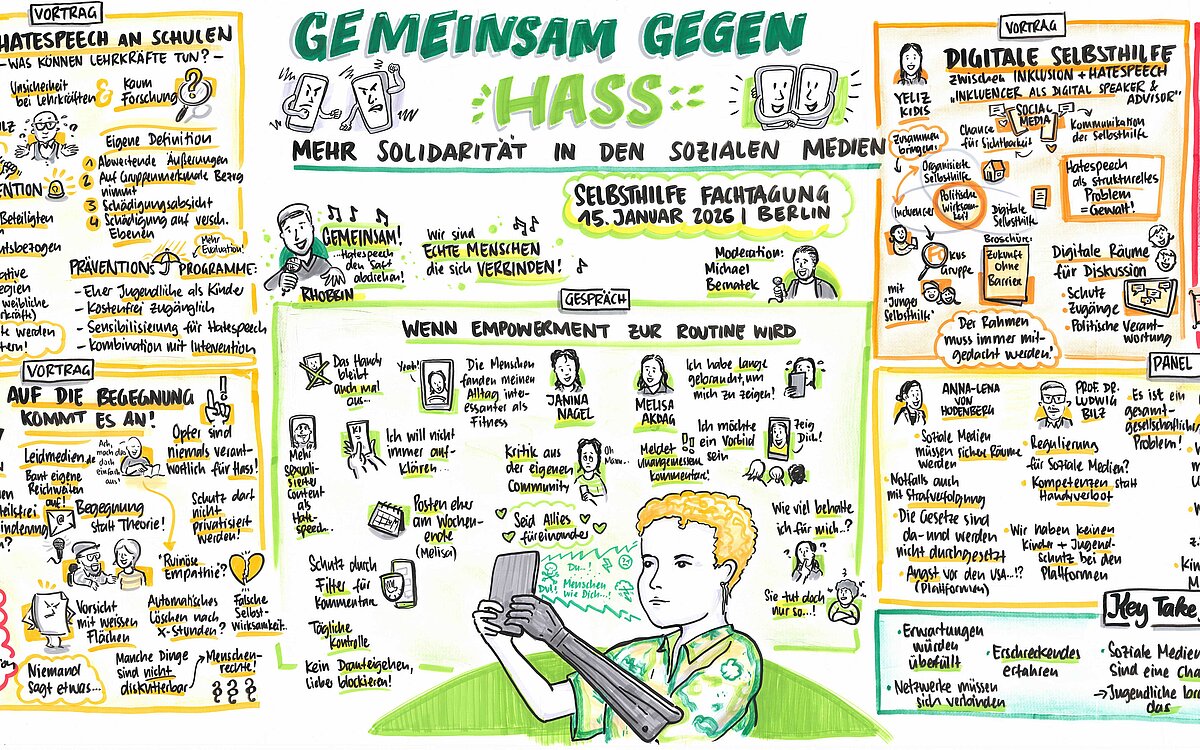 VORTRAG
HATESPEECH AN SCHULEN
- WAS KÖNNEN LEHRKRÄFTE TUN? -
Unsicherheit
bei Lehrkräften
&
Kaum
Forschung
?
Eigene Definition
1 Abwertende Äußerungen
2 Auf Gruppenmerkmale Bezug
nimmt
3 Schädigungsabsicht
4 Schädigung auf versch.
Ebenen
Beteiligten
weibliche
Mehr
Evaluation!
PRÄVENTIONS PROGRAMME:
- Eher Jugendliche als Kinder
- Kostenfrei zugänglich
- Sensibilisierung für Hatespeech
- Kombination mit Intervention
VORTRAG
AUF DIE BEGEGNUNG
KOMMT ES AN!
Leidmedien.de
Baut eigene
Reichweiten
auf!
Ach,
mach das
doch
einfach
aus!
Opfer sind
niemals verant-
wortlich für Hass!
Begegnung
statt Theorie!
Schutz darf
nicht
privatisiert
werden!
"Ruinöse
Empathie"?
Vorsicht
mit weissen
Flächen
Automatisches
Löschen nach
X-Stunden?
Falsche
Selbst-
wirksamkeit
Niemand
sagt etwas...
Manche Dinge
sind nicht
diskutierbar
Menschen-
rechte!
§§§
§§§
GEMEINSAM GEGEN
HASS
MEHR SOLIDARITÄT IN DEN SOZIALEN MEDIEN
SELBSTHILFE FACHTAGUNG
15. JANUAR 2026 | BERLIN
GEMEINSAM!
...Hatespeech
den Saft
abdrehen!
RHOBBIN
Wir sind
ECHTE MENSCHEN
die sich VERBINDEN!
Moderation:
Michael
Bernatek
GESPRÄCH
WENN EMPOWERMENT ZUR ROUTINE WIRD
Das Handy
bleibt
auch mal
aus...
Yeah!
Die Menschen
fanden meinen
Alltag inte-
ressanter als
Fitness
JANINA
NAGEL
MELISA
AKDAG
Ich habe lange
gebraucht, um
mich zu zeigen!
Mehr
sexuali-
sierter
Content
als
Hate-
speech...
Ich will nicht
immer auf-
klären...
Kritik aus
der eigenen
Community
Oh
Mann..
Meldet
unangemessene
Kommentare!
Ich möchte
ein Vorbild
sein
Zeig
Dich!
Posten eher
am Wochen-
ende
(Melisa)
Seid Allies
füreinander
Wie viel behalte
ich für mich..?
Schutz durch
Filter für
Kommentare
Du...!
Du!
Menschen
wie Dich...!
Sie tut doch
nur so...!
Tägliche
Kontrolle
Kein Drauteigehen,
lieber blockieren!
VORTRAG
DIGITALE SELBSTHILFE
zwischen INKLUSION + HATESPEECH
"INKLUENCER ALS DIGITAL SPEAKER &
ADVISOR"
YELIZ
KIDIS
Zusammen
bringen:
Chance
für Sichtbarkeit
SOCIAL
MEDIA
Kommunikation
der Selbsthilfe
Organisierte
Selbsthilfe
Politische
wirksam-
keit!
Inkluencer
Digitale
Selbsthilfe
Hatespeech
als strukturelles
Problem
= Gewalt!
Fokus
Gruppe
mit "Junger
Selbsthilfe"
Broschüre:
Zukunft
ohne
Barrieren
Digitale Räume
für Diskussion
• Schutz
zugänge
• Politische Verant-
wortung
Der Rahmen
muss immer mit-
gedacht werden!
PANEL
ANNA-LENA
VON
HODENBERG
• Soziale Medien
müssen sichere Räume
werden
• Notfalls auch
mit Strafverfolgung
• Die Gesetze sind
da - und werden
nicht durchgesetzt
• Angst vor den USA...!?
(Plattformen)
PROF. DR.
LUDWIG
BILZ
• Regulierung
für Soziale Medien?
• Kompetenzen statt
Handyverbot
• Wir haben keinen
Kinder + Jugend-
Schutz bei den
Plattformen
• Es ist ein
gesamt-
gesellschaftliches
Problem!
Key Take
• Erwartungen
würden
überfüllt
• Netzwerke müssen
sich verbinden
• Erschreckendes
erfahren
• Soziale Medien
sind eine Cha
→ Jugendliche
das